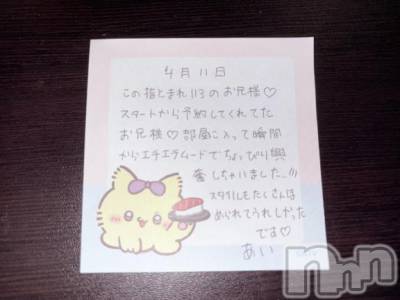 4月11日
この指とまれ113のお兄様♡
スタートから予約してくれてた
お兄様♡部屋に入って瞬間
からエチエチムードでちょっぴり興
奮しちゃいました...///
スタイルもたくさんほ
められてうれしかった
です♡
あい